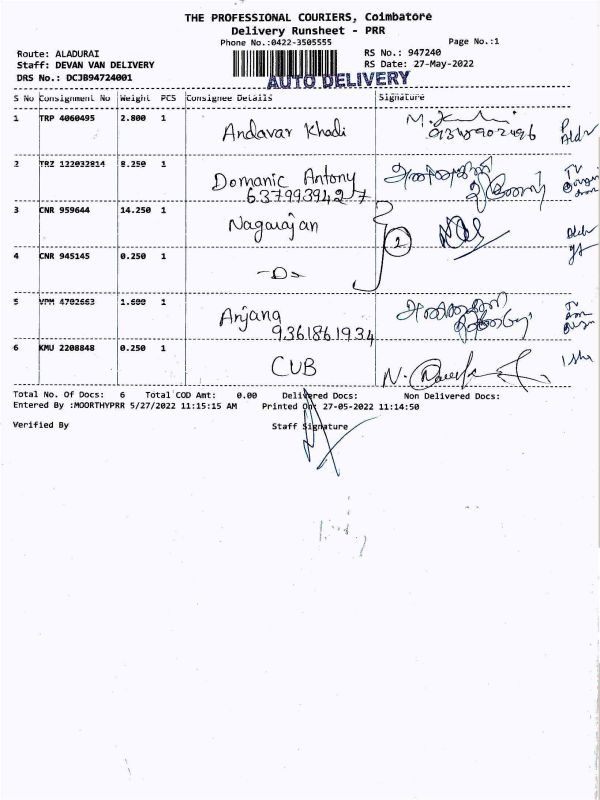 THE PROFESSIONAL COURIERS, Coimbatore
Delivery Runsheet - PRR
Phone No.:0422-3505555 Page No.:1
Route: ALADURAI RS No.: 947240
Staff: DEVAN VAN DELIVERY RS Date: 27-May-2022
DRS No.: DCJB94724001 AUTO DELIVERY
S No Consignment No Weight PCS Consignee Details Signature
1 TRP 4060495 2.800 1 Andavar Khadi
2 TRZ 122032814 8.250 1 Domanic Antony
6379939427
3 CNR 959644 14.250 1 Nagarajan
2
4 CNR 945145 0.250 1 -Do-
5 VPM 4702663 1.600 1 Anjana
9361861934
6 KMU 2208848 0.250 1 CUB
Total No. Of Docs: 6 Total COD Amt: 0.00 Delivered Docs: Non Delivered Docs:
Entered By :MOORTHYPRR 5/27/2022 11:15:15 AM Printed On: 27-05-2022 11:14:50
Verified By Staff Signature